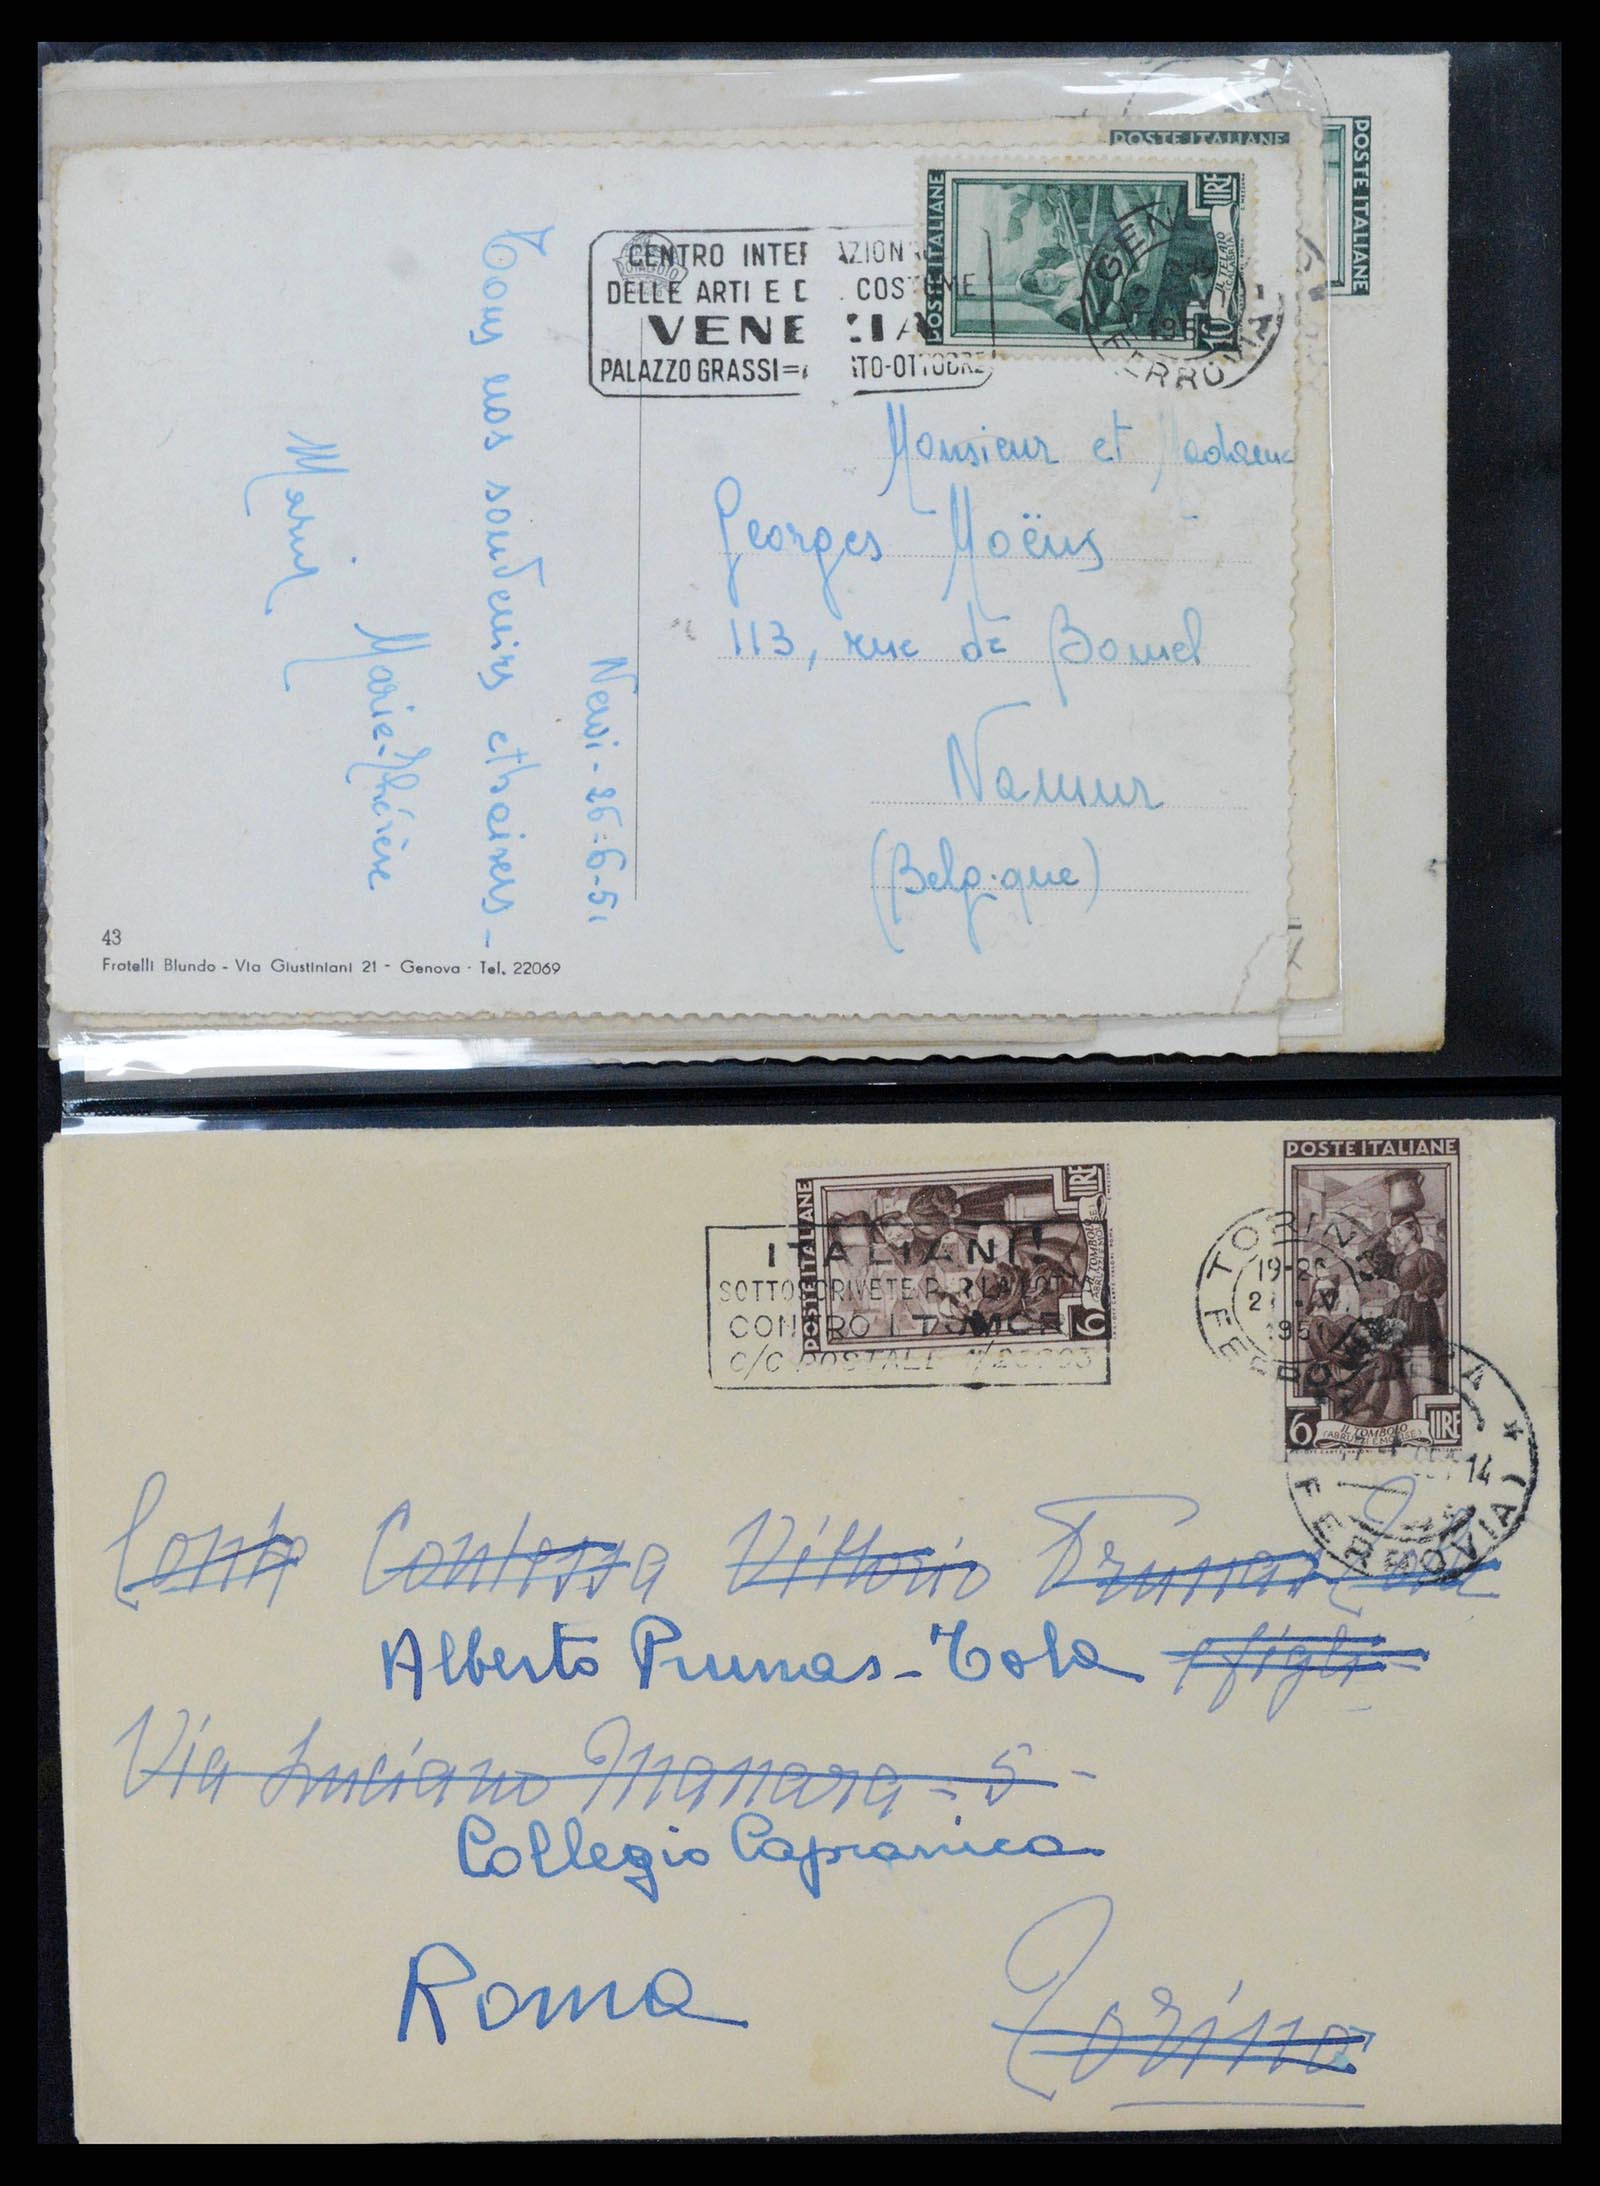 POSTE ITALIANE
POSTE ITALIANE
POSTE ITALIANE
10 LIRE
IL TELAIO
(CALABRIA)
GEN
195
FERROVIA
CENTRO INTER AZION
DELLE ARTI E D COSTUME
VENEZIA
PALAZZO GRASSI = A TO-OTTOBRE
Monsieur et Madame
Georges Moëns
113, rue de Bomel
Namur
(Belgique)
Nervi - 26-6-51
Tous nos souvenirs
Marie-Thérèse
43
Fratelli Blundo - Via Giustiniani 21 - Genova - Tel. 22069
POSTE ITALIANE
6 LIRE
IL TOMBOLO
(ABRUZZI E MOLISE)
POSTE ITALIANE
6 LIRE
IL TOMBOLO
(ABRUZZI E MOLISE)
ITALIANI!
SOTTOSCRIVETE PER LA LOTTA
CONTRO I TUMORI
C/C POSTALE
TORINO
19-20
195
FERROVIA
14
FERROVIA
Conte Contessa Vittorio Prunas Tola
Alberto Prunas-Tola e figli
Via Luciano Manara - 5 -
Collegio Capranica
Roma
Torino